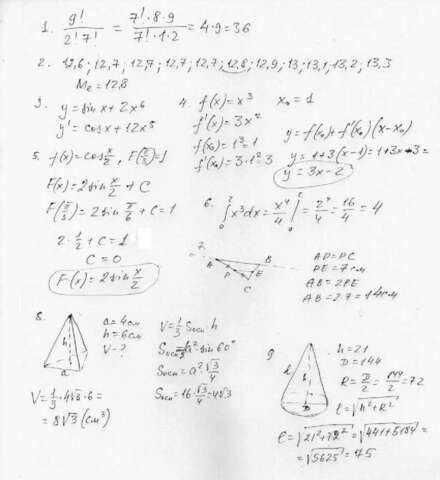 1. 9!/(2!7!) = (7!·8·9)/(7!·1·2) = 4·9=36
2. 12,6; 12,7; 12,7; 12,7; 12,7; 12,8; 12,9; 13; 13,1; 13,2; 13,3
Me = 12,8
3. y = sin x + 2x⁶
y' = cos x + 12x⁵
4. f(x) = x³ x₀ = 1
f'(x) = 3x²
f(x₀) = 1³ = 1
f'(x₀) = 3·1² = 3
y = f(x₀) + f'(x₀)(x-x₀)
y = 1+3(x-1) = 1+3x-3 =
y = 3x-2
5. f(x) = cos x/2, F(π/3)=1
F(x) = 2 sin x/2 + C
F(π/3) = 2 sin π/6 + C = 1
2·1/2 + C = 1
C = 0
F(x) = 2 sin x/2
6. ∫₀² x³dx = x⁴/4 |₀² = 2⁴/4 = 16/4 = 4
7.
A B
P E
C
AP=PC
PE = 7см
AB = 2PE
AB = 2·7 = 14см
8.
h
a
a = 4см
h = 6см
V - ?
V = 1/3 Sосн h
Sосн = a² sin 60°
Sосн = a²·√3/4
Sосн = 16·√3/4 = 4√3
V = 1/3 · 4√3 · 6 =
= 8√3 (см³)
9
l
h
D
h = 21
D = 144
R = D/2 = 144/2 = 72
l = √(h²+R²)
l = √(21²+72²) = √(441+5184) =
= √5625 = 75